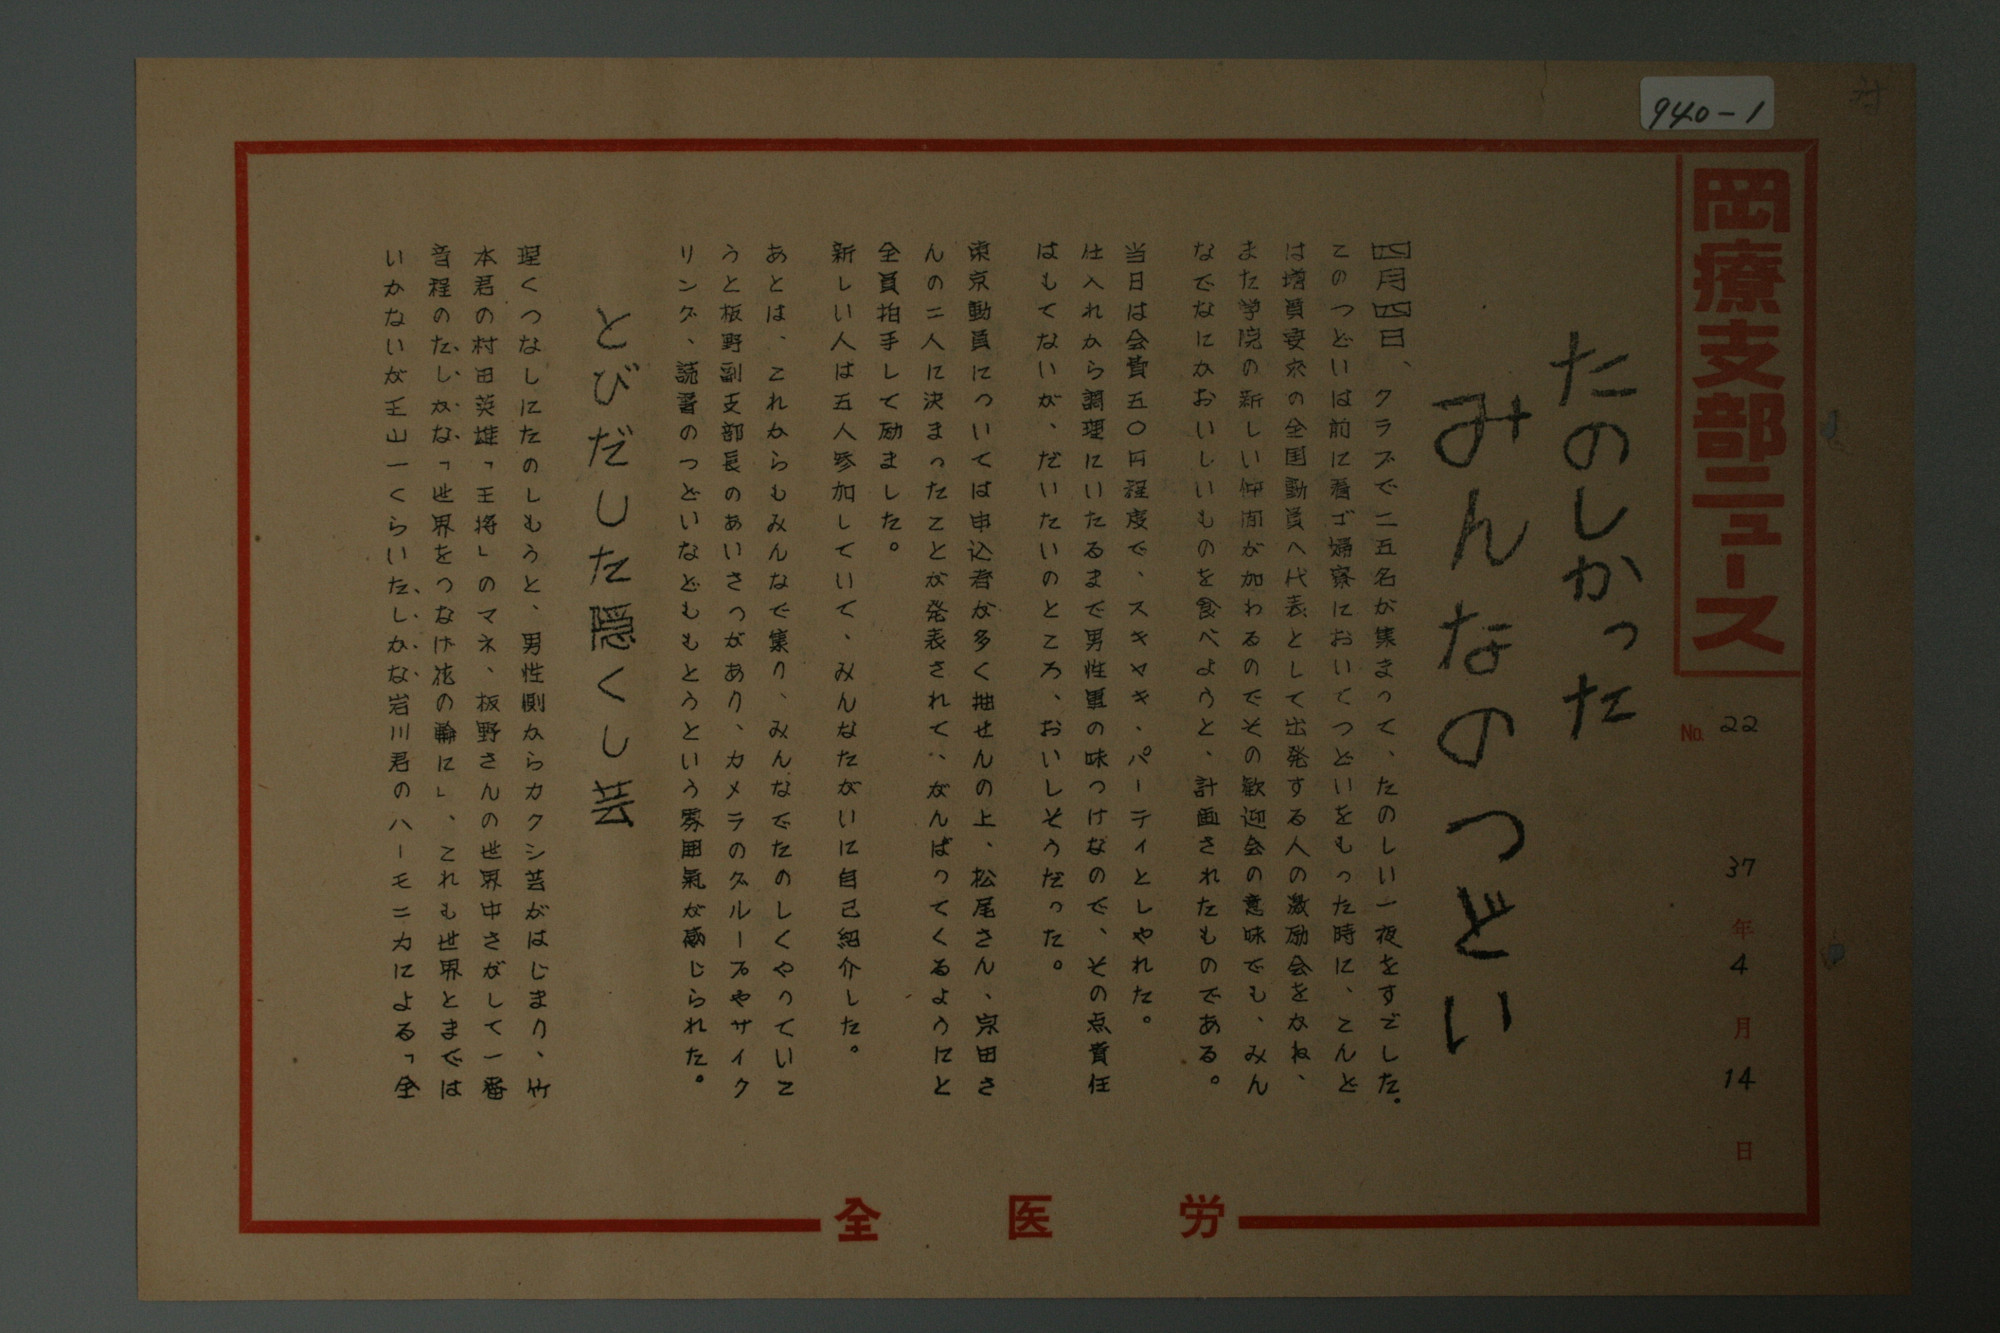 940-1
岡療支部ニュース
No. 22
37年4月14日
たのしかった
みんなのつどい
四月四日、クラブで二五名が集まって、たのしい一夜をすごした。
このつどいは前に看ゴ婦寮においてつどいをもった時に、こんど
は増員要求の全国動員へ代表として出発する人の激励会をかね、
また学院の新しい仲間が加わるのでその歓迎会の意味でも、みん
なでなにかおいしいものを食べようと、計画されたものである。
当日は会費五〇円程度で、スキヤキ・パーティとしゃれた。
仕入れから調理にいたるまで男性軍の味つけなので、その点責任
はもてないが、だいたいのところ、おいしそうだった。
東京動員については申込者が多く抽せんの上、松尾さん、宗田さ
んの二人に決まったことが発表されて、がんばってくるようにと
全員拍手して励ました。
新しい人は五人参加していて、みんなたがいに自己紹介した。
あとは、これからもみんなで集り、みんなでたのしくやっていこ
うと板野副支部長のあいさつがあり、カメラのグループやサイク
リング、読書のつどいなどももとうという雰囲氣が感じられた。
とびだした隠くし芸
理くつなしにたのしもうと、男性側からカクシ芸がはじまり、竹
本君の村田英雄「王将」のマネ、板野さんの世界中さがして一番
音程のたしかな「世界をつなげ花の輪に」、これも世界とまでは
いかないが王山一くらいたしかな岩川君のハーモニカによる「全
全医労